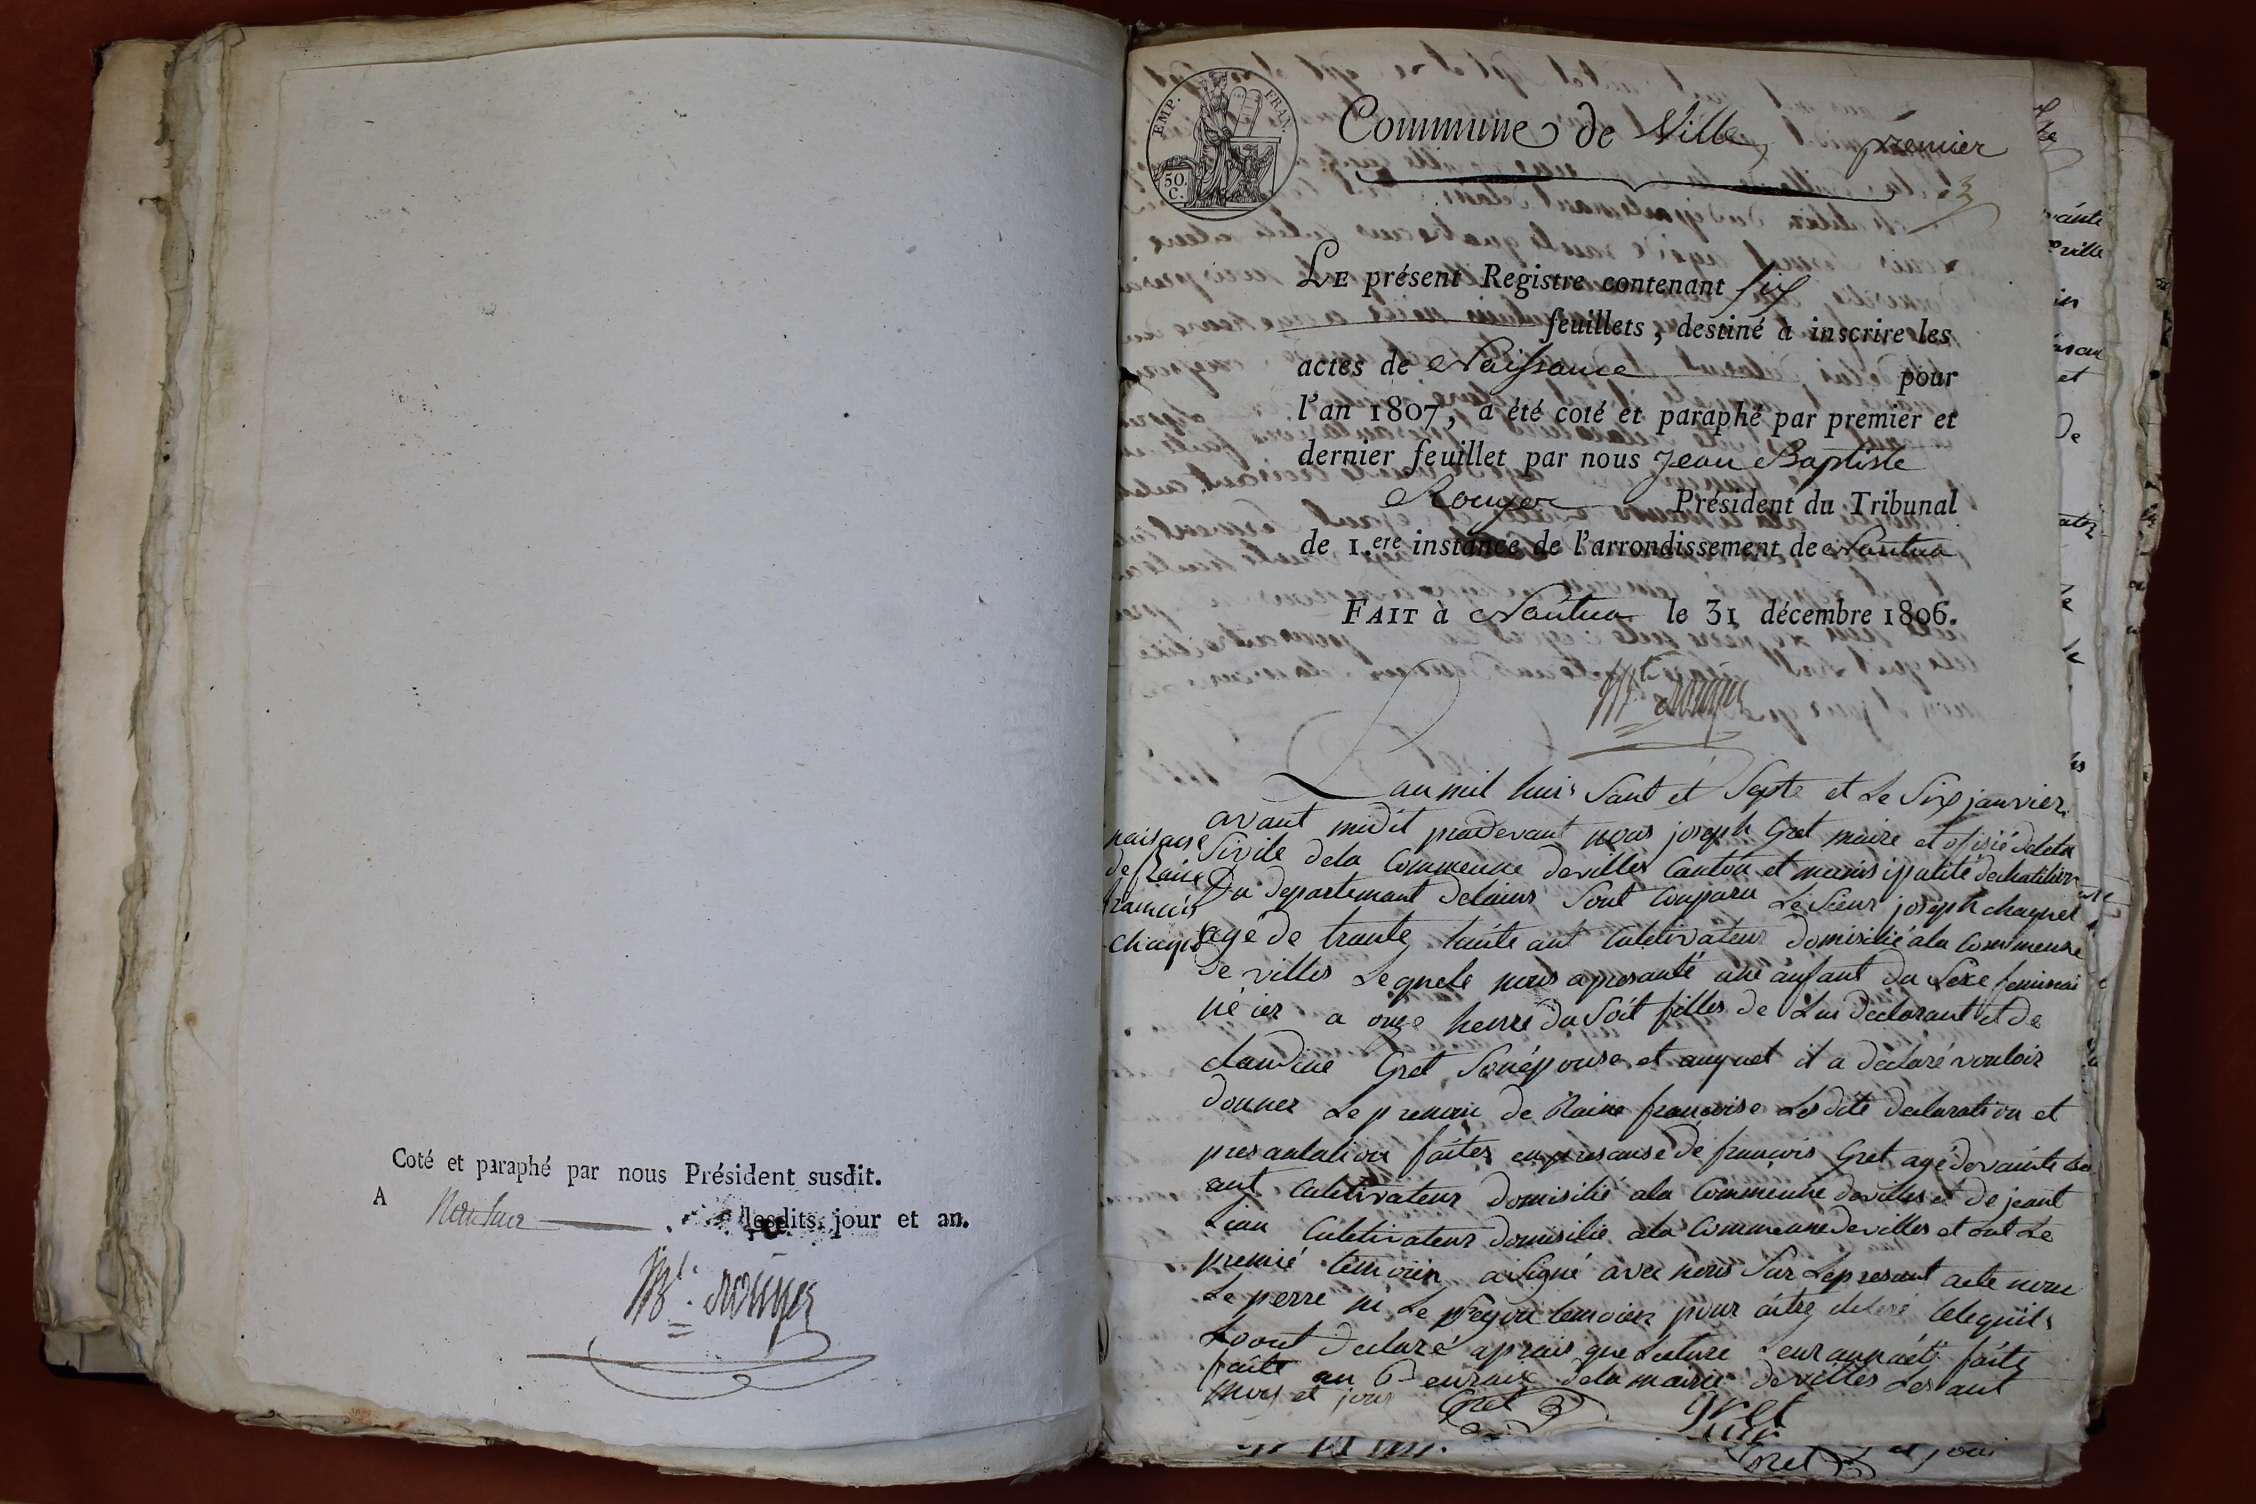 Coté et paraphé par nous Président susdit.
A Nantua lesdits, jour et an.
Bt. Rouyer
EMP. FRAN.
50. C.
Commune de Ville premier
LE présent Registre contenant six
feuillets, destiné à inscrire les
actes de Naissance pour
l'an 1807, a été coté et paraphé par premier et
dernier feuillet par nous Jean Baptiste
Rouyer Président du Tribunal
de 1.ere instance de l'arrondissement de Nantua
FAIT à Nantua le 31 décembre 1806.
Bt. Rouyer
naisanse
de Raine
francois
chaguet
Lan mil huis sant et septe et Le six janvier
avant midit pardevant nous joseph Gret maire et ofisié deleta
Sivile dela Commeune devilles Canton et munisipalité dechatilion
Du departemant delains sont conparu Le sieur joseph chaguet
agé de trante huite ant Culetivateur domisilié ala Commeune
de villes Lequele nous a presanté une anfant du sexe feminai
né ier a onze heure du soit filles de Lui declarant et de
claudine Gret son épouse et auquel il a declaré vouloir
donner Le prenon de Raine francoise Lesdite declaration et
presantation faites enpresanse de francois Gret agé devainte
ant Culetivateur domisilié ala Commeune devilles et de jeant
Culetivateur domisilié ala Commeune devilles et ont Le
premié temoin a signé avec nous sur Lepresant acte nom
Le perre ni Le segon temoien pour aitre
Loont declaré aprais que Lecture Leur annaét faite
faite au dela mairie devilles Les ant
mois et jour
Gret
Gret